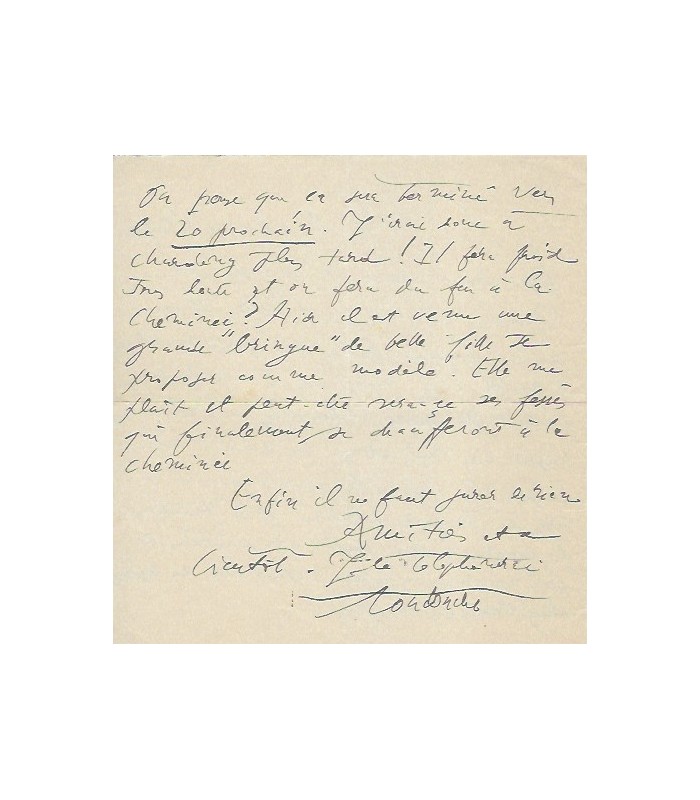 On pense que ça sera terminé vers
le 20 prochain. J'irai donc à
plus tard ! Il fera froid
sans doute et on fera du feu à la
cheminée ? Hier il est venu une
grande "bringue" de belle fille se
proposer comme modèle. Elle me
plaît et peut-être sera-ce ses fesses
qui finalement se chaufferont à la
cheminée
Enfin il ne faut jurer de rien
Amitiés et à
bientôt. Je te téléphonerai